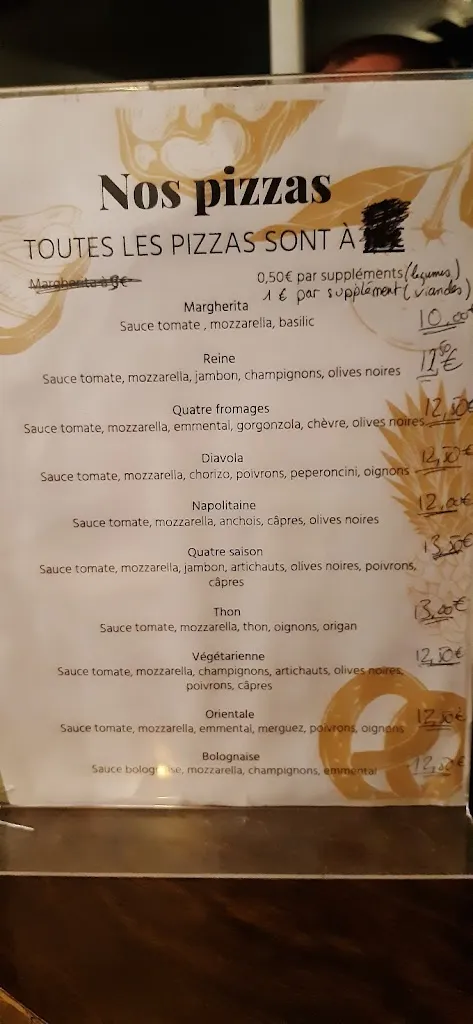 Nos pizzas
TOUTES LES PIZZAS SONT À
Margherita à 9€
0,50€ par suppléments (légumes)
1 € par supplément (viandes)
Margherita
10,00€
Sauce tomate , mozzarella, basilic
Reine
Sauce tomate, mozzarella, jambon, champignons, olives noires
Quatre fromages
12,50€
Sauce tomate, mozzarella, emmental, gorgonzola, chèvre, olives noires
Diavola
12,50€
Sauce tomate, mozzarella, chorizo, poivrons, peperoncini, oignons
Napolitaine
12,00€
Sauce tomate, mozzarella, anchois, câpres, olives noires
Quatre saison
13,50€
Sauce tomate, mozzarella, jambon, artichauts, olives noires, poivrons,
câpres
Thon
13,00€
Sauce tomate, mozzarella, thon, oignons, origan
Végétarienne
12,50€
Sauce tomate, mozzarella, champignons, artichauts, olives noires,
poivrons, câpres
Orientale
12,50€
Sauce tomate, mozzarella, emmental, merguez, poivrons, oignons
Bolognaise
12,50€
Sauce bolognaise, mozzarella, champignons, emmental